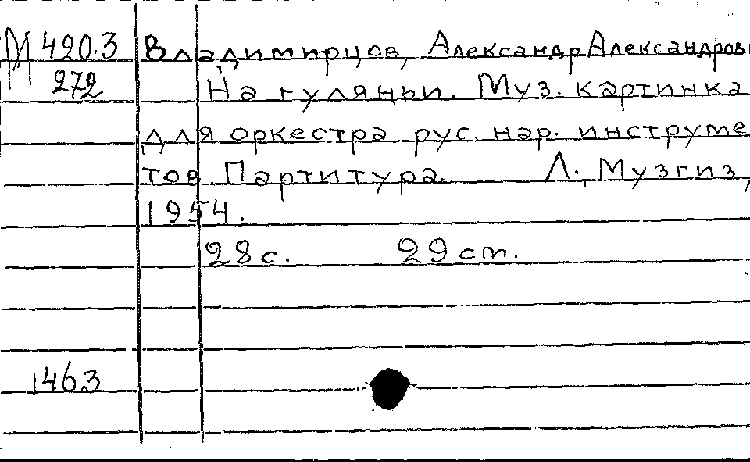 М 420.3 Владимирцов, Александр Александров
272 На гулянки. Муз. картинка
для оркестра рус. нар. инструме
тов Партитура. Л., Музгиз,
1954.
28 с. 29 см.
1463